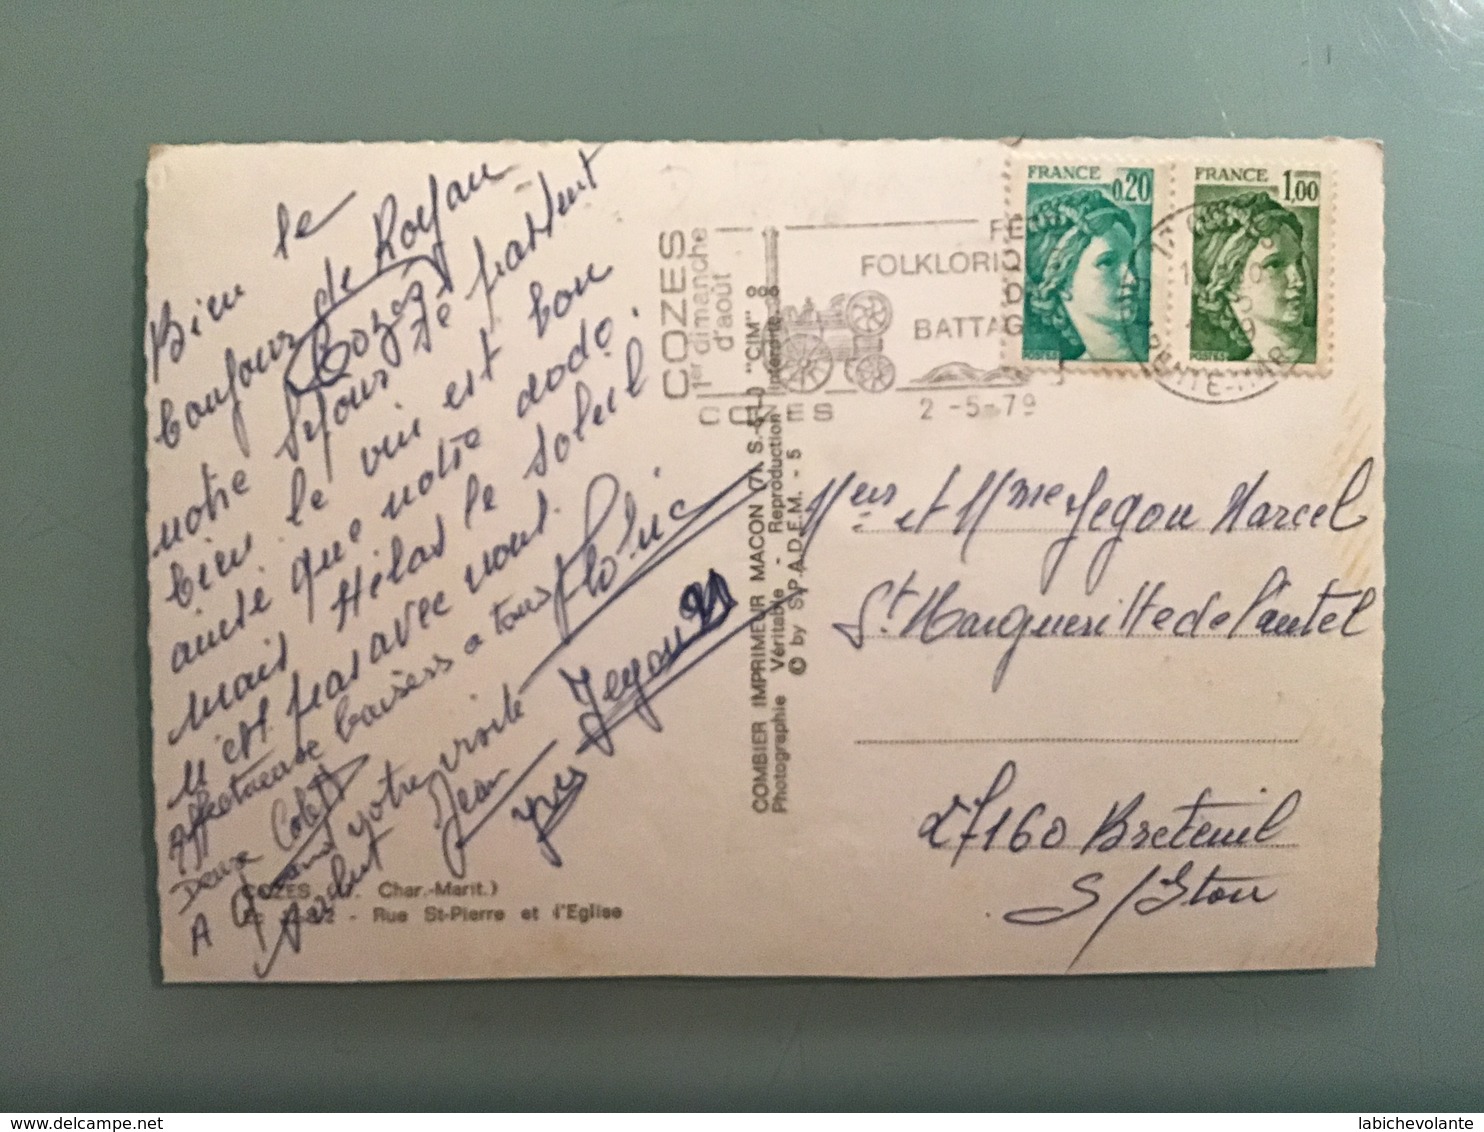 le
Bien
bonjour de Royan
Cozes
notre séjour se passent
bien le vin est bon
ainsi que notre dodo.
mais Hélas le soleil
n'est pas avec nous.
Affectueuse baisers a tous
Deux Colette
A Quand votre visite
Salut Jean
Yves Jegou
COZES (17. Char.-Marit.)
- Rue St-Pierre et l'Eglise
COMBIER IMPRIMEUR MACON (71. S.-&-L.) "CIM"
Photographie Véritable - Reproduction Interdite
© by S.P.A.D.E.M. - 5
COZES
1er dimanche
d'août
FOLKLORIQ
BATTAG
COZES
2 -5- 79
FRANCE 0,20
POSTES
FRANCE 1,00
POSTES
Meur et Mme Jegou Marcel
St Margueritte de l'autel
27160 Breteuil
S/Iton
labichevolante